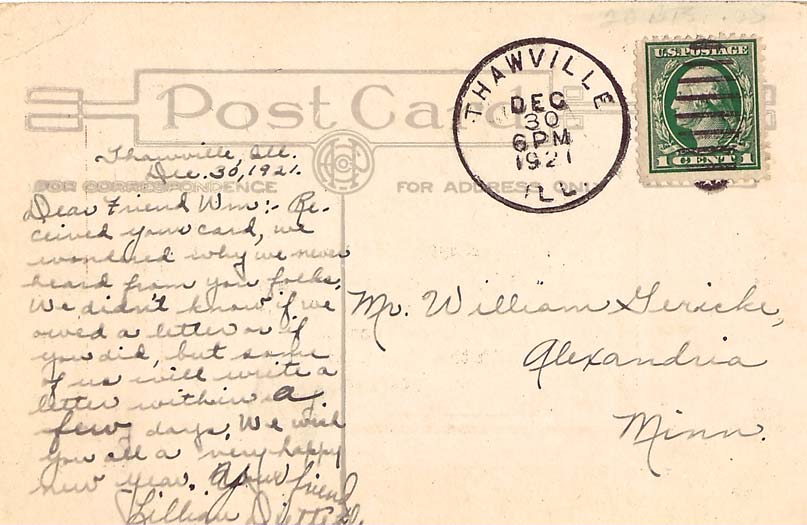 Post Card
FOR CORRESPONDENCE
FOR ADDRESS ONLY
THAWVILLE
DEC
30
6 PM
1921
ILL
U.S. POSTAGE
1 CENT 1
Thawville, Ill.
Dec. 30, 1921.
Dear Friend Wm:- Re-
ceived your card, we
wondered why we never
heard from you folks,
We didn't know if we
owed a letter or if
you did, but some
of us will write a
letter within a
few days. We wish
you all a very happy
new year. Your friend
Lillian
Mr. William Gericke,
Alexandria
Minn.